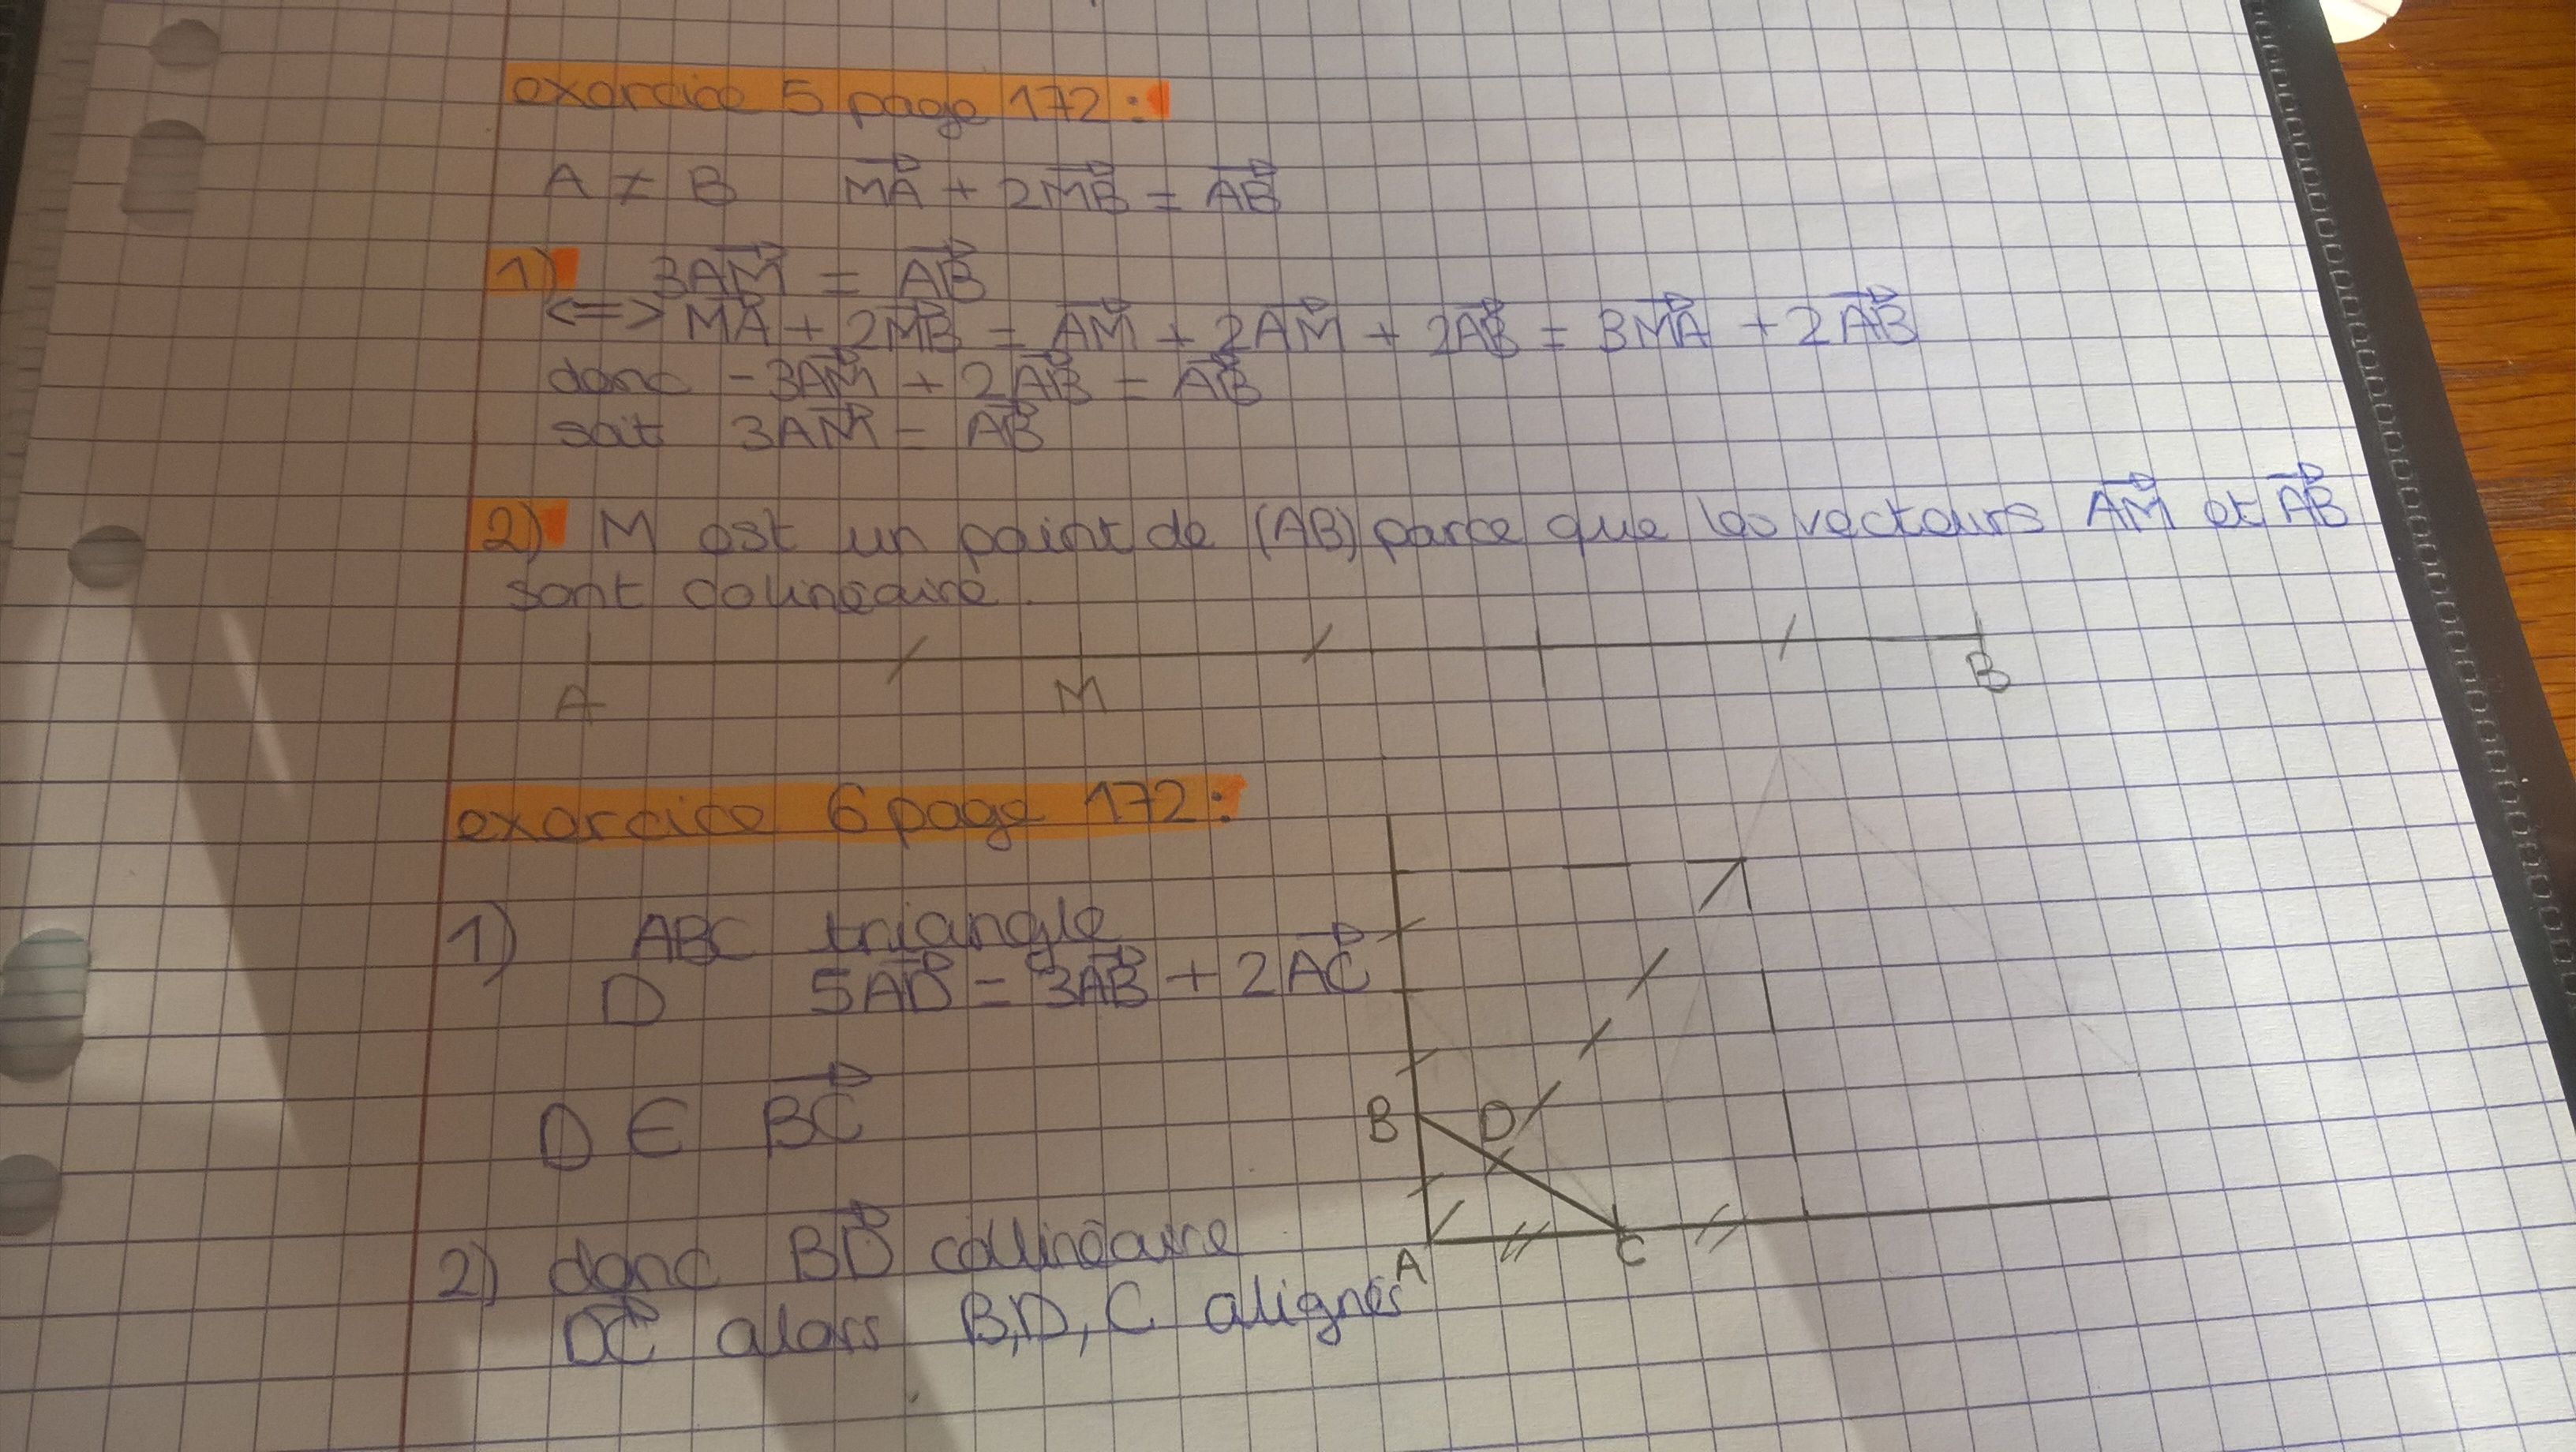 exercice 5 page 172 :
A ≠ B MA + 2MB = AB
1) 3AM = AB
<=> MA + 2MB = AM + 2AM + 2AB = 3MA + 2AB
donc -3AM + 2AB = AB
soit 3AM = AB
2) M est un point de (AB) parce que les vecteurs AM et AB
sont colinéaire.
A M B
exercice 6 page 172 :
1) ABC triangle
D 5AD = 3AB + 2AC
D ∈ BC
2) donc BD colinéaire
DC alors B, D, C alignés
B
D
A
C